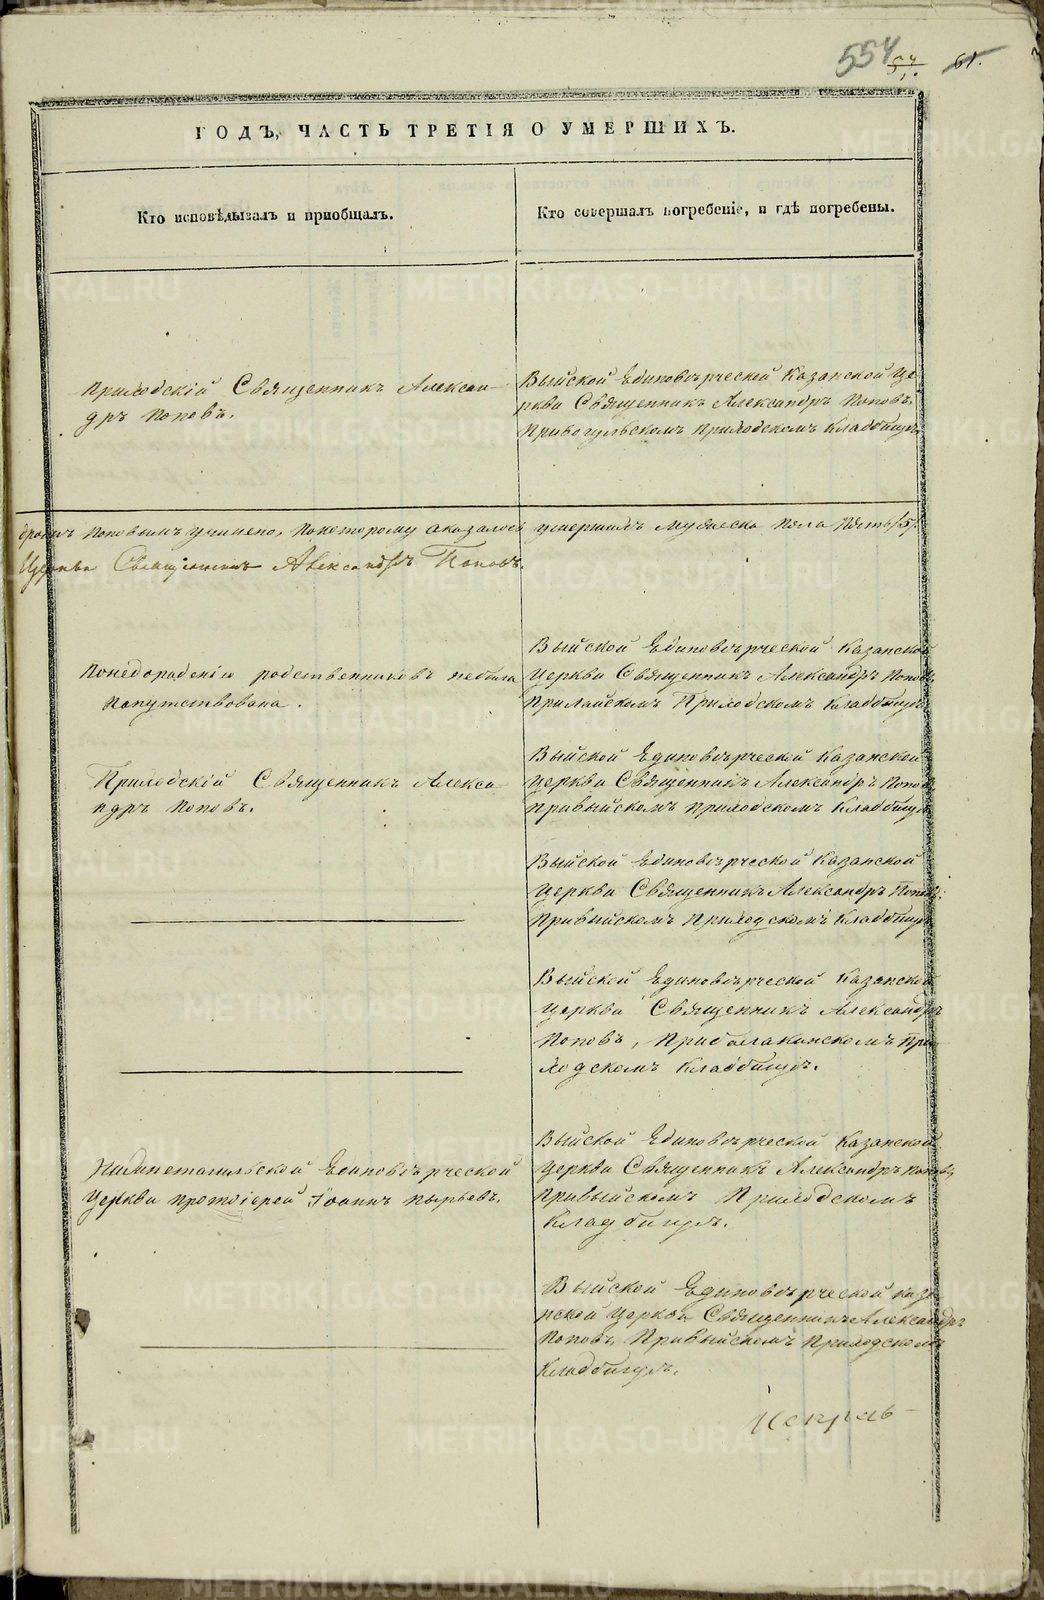 554
61.
ГОДЪ, ЧАСТЬ ТРЕТІЯ О УМЕРШИХЪ.
Кто исповѣдывалъ и пріобщалъ.
Кто совершалъ погребеніе, и гдѣ погребены.
Приходскій Священникъ Алексан-
дръ Поповъ.
Выйской Единовѣрческой Казанской Це
ркви Священникъ Александръ Поповъ.
Приходскомъ Кладбищѣ
Поповымъ учинено, по которому оказалось умершихъ мужеска пола пять /5/.
Церкви Священникъ Александръ Поповъ.
родственниковъ небыла
напутствована.
Выйской Единовѣрческой Казанской
Церкви Священникъ Александръ Поповъ
Приходскомъ Кладбищѣ
Приходскій Священникъ Алекса
ндръ Поповъ.
Выйской Единовѣрческой Казанской
Церкви Священникъ Александръ Поповъ
Привыйскомъ Приходскомъ Кладбищѣ
Выйской Единовѣрческой Казанской
Церкви Священникъ Александръ Поповъ
Привыйскомъ Приходскомъ Кладбищѣ
Выйской Единовѣрческой Казанской
Церкви Священникъ Александръ
Поповъ, При
ходскомъ Кладбищѣ.
Нижнетагильской Единовѣрческой
Церкви протоіерей Іоаннъ Пырьевъ.
Выйской Единовѣрческой Казанской
Церкви Священникъ Александръ Поповъ,
Привыйскомъ Приходскомъ
Кладбищѣ.
Выйской Единовѣрческой Каза
нской Церкви Священникъ Александръ
Поповъ, Привыйскомъ Приходскомъ
Кладбищѣ.
METRIKI.GASO-URAL.RU